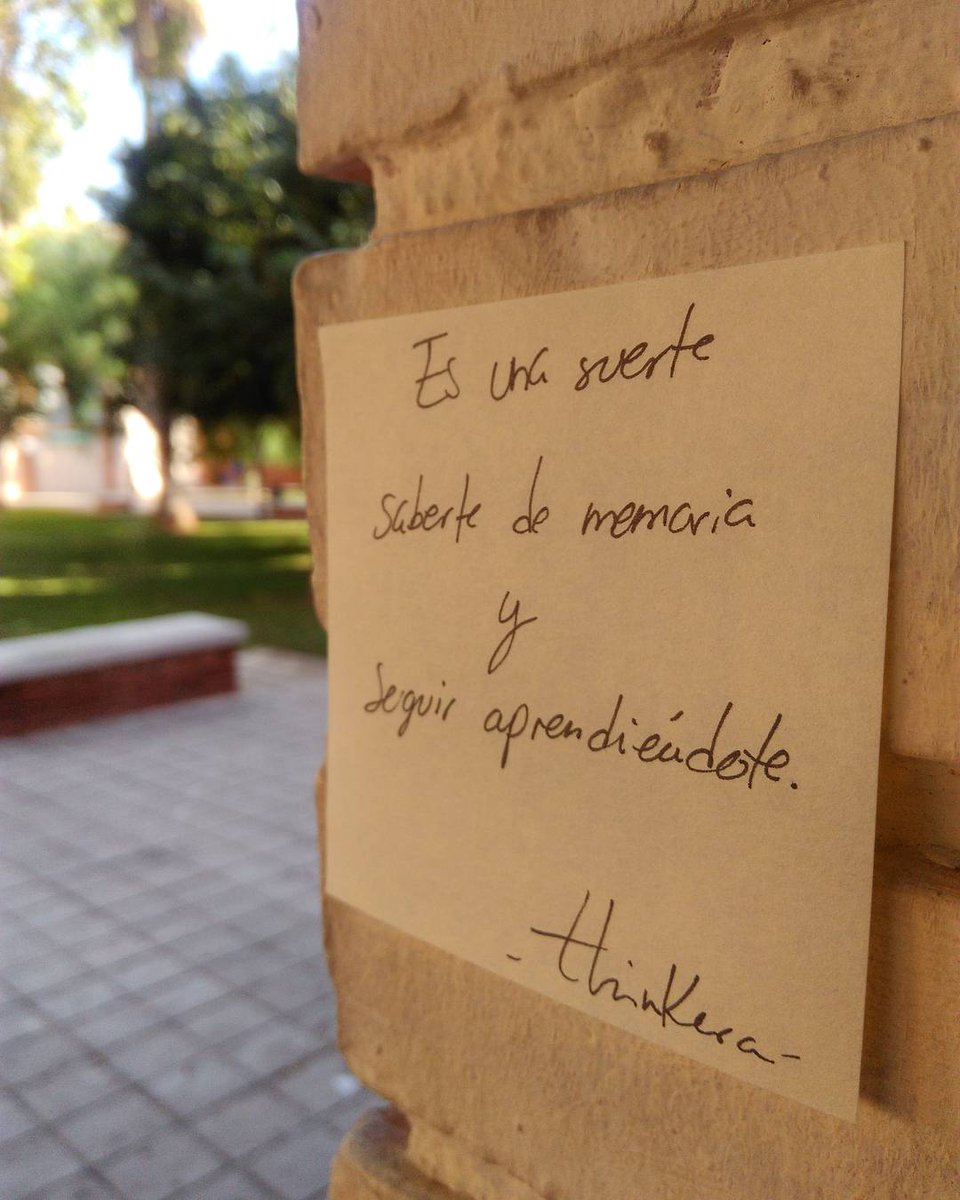 Es una suerte
saberte de memoria
y
seguir aprendiéndote.
-thinkera-